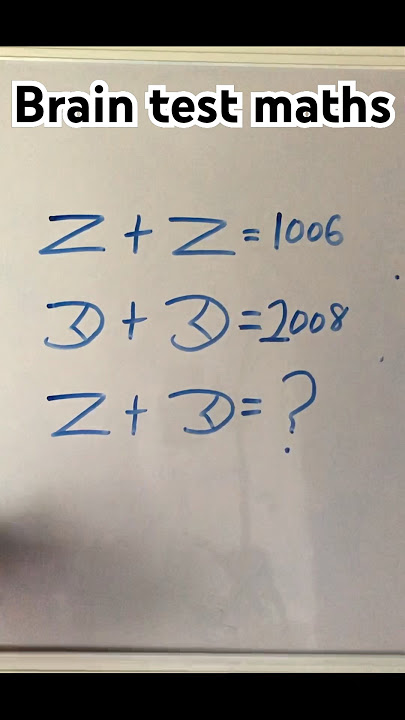 Brain test maths
Z + Z = 1006
3 + 3 = 2008
Z + 3 = ?